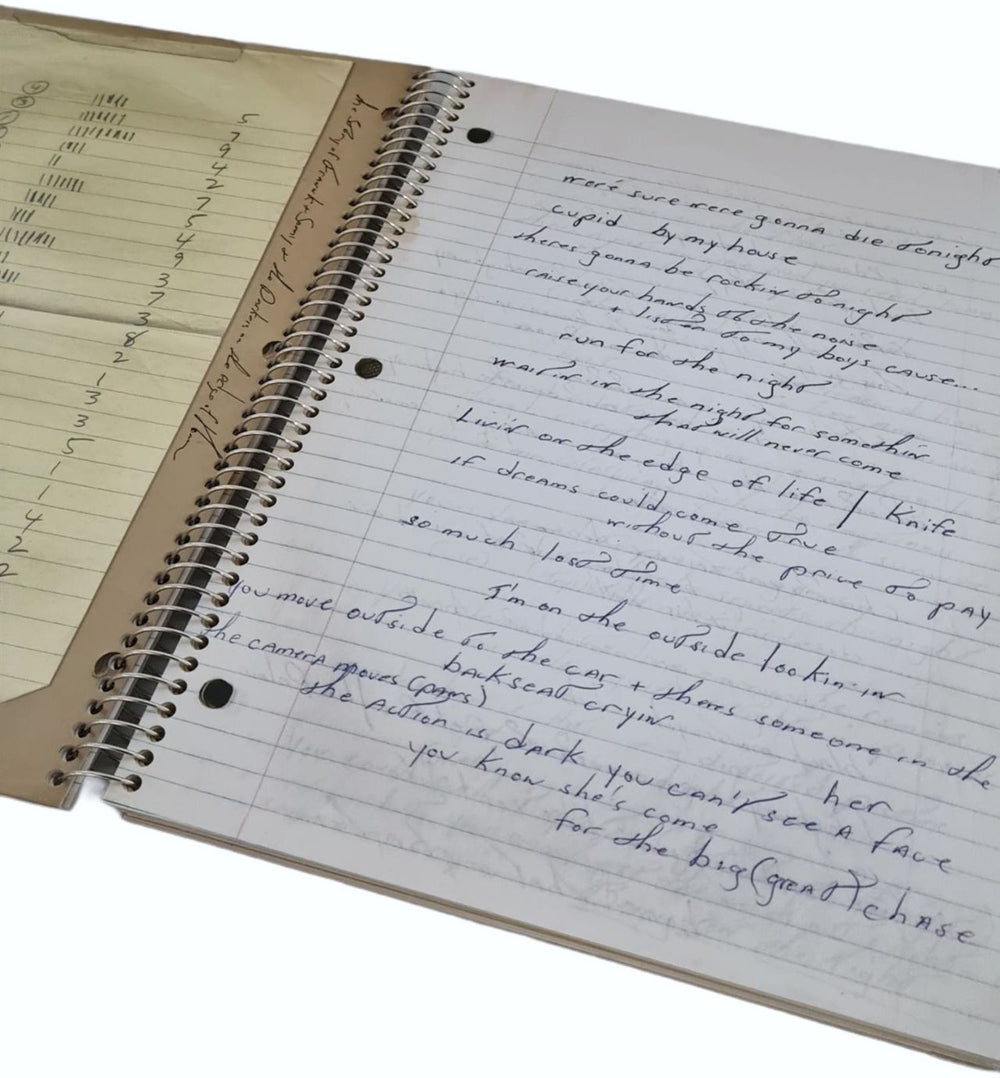 5
7
9
4
2
7
5
4
9
3
7
3
8
2
1
3
3
5
1
1
4
2
2
were sure were gonna die tonight
cupid by my house
theres gonna be rockin tonight
raise your hands to the noise
+ listen to my boys cause...
run for the night
waitin in the night for somethin
that will never come
Livin on the edge of life / Knife
if dreams could come true
without the price to pay
so much lost time
I'm on the outside lookin in
you move outside to the car + theres someone in the
backseat cryin
the camera moves (pans) her
the action is dark you can't see a face
you know she's come
for the big (great) chase